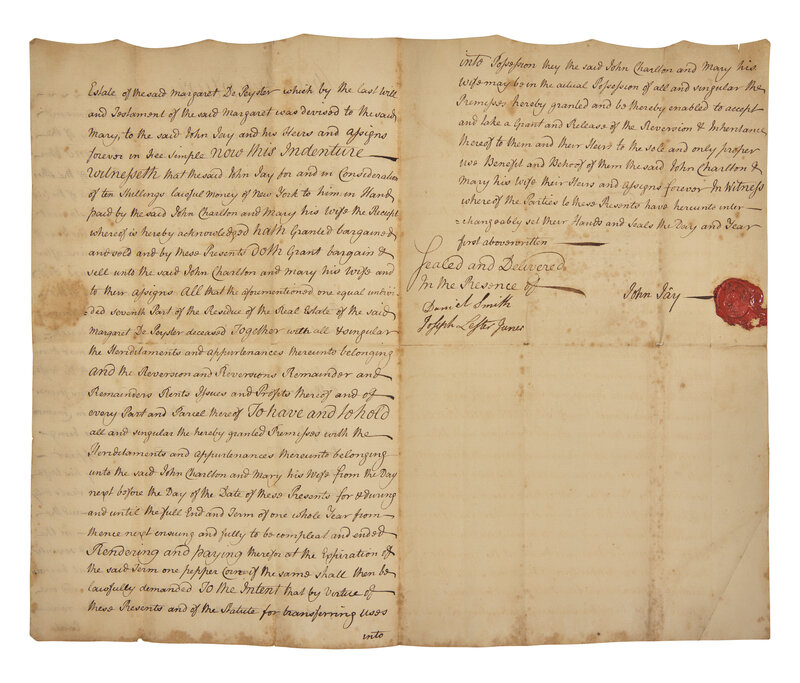 Estate of the said Margaret De Peyster which by the Last Will
and Testament of the said Margaret was devised to the said
Mary, to the said John Jay and his Heirs and assigns
forever in Fee Simple Now this Indenture
Witnesseth that the said John Jay for and in Consideration
of ten Shillings lawful money of New York to him in Hand
paid by the said John Charlton and Mary his Wife the Receipt
whereof is hereby acknowledged hath Granted bargained
and sold and by these Presents Doth Grant bargain &
sell unto the said John Charlton and Mary his Wife and
to their assigns All that the aforementioned one equal undivi
ded seventh Part of the Residue of the Real Estate of the said
Margaret De Peyster deceased Together with all & singular
the Heriditaments and appurtenances thereunto belonging
and the Reversion and Reversions Remainder and
Remainders Rents Issues and Profits thereof and of
every Part and Parcel thereof To have and to hold
all and singular the hereby granted Premisses with the
Heriditaments and appurtenances thereunto belonging
unto the said John Charlton and Mary his Wife from the Day
next before the Day of the Date of these Presents for & during
and until the full End and Term of one whole Year from
thence next ensuing and fully to be compleat and ended
Rendering and paying therefor at the Expiration of
the said Term one pepper Corn if the same shall then be
lawfully demanded To the Intent that by Virtue of
these Presents and of the Statute for transferring uses
into
into Possession they the said John Charlton and Mary his
Wife may be in the actual Possession of all and singular the
Premisses hereby granted and be thereby enabled to accept
and take a Grant and Release of the Reversion & Inheritance
thereof to them and their Heirs to the sole and only proper
use Benefit and Behoof of them the said John Charlton &
Mary his Wife their Heirs and assigns forever In Witness
whereof the Parties to these Presents have hereunto inter
=changeably set their Hands and Seals the Day and Year
first above written
Sealed and Delivered
In the Presence of
John Jay
Daniel Smith
Joseph Lester Junr